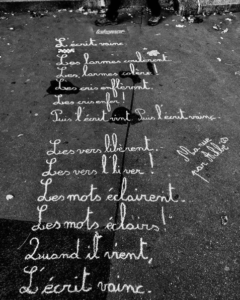 L'écrit vainc
Les larmes coulèrent
Les larmes colère!
Les cris enflèrent.
Les cris enfer!
Puis l'écrit vint Puis l'écrit vainc.
Les vers libèrent..
Les vers l'hiver!
Les mots éclairent.
Les mots éclairs!
Quand il vient,
L'écrit vainc.
Ma rue
par